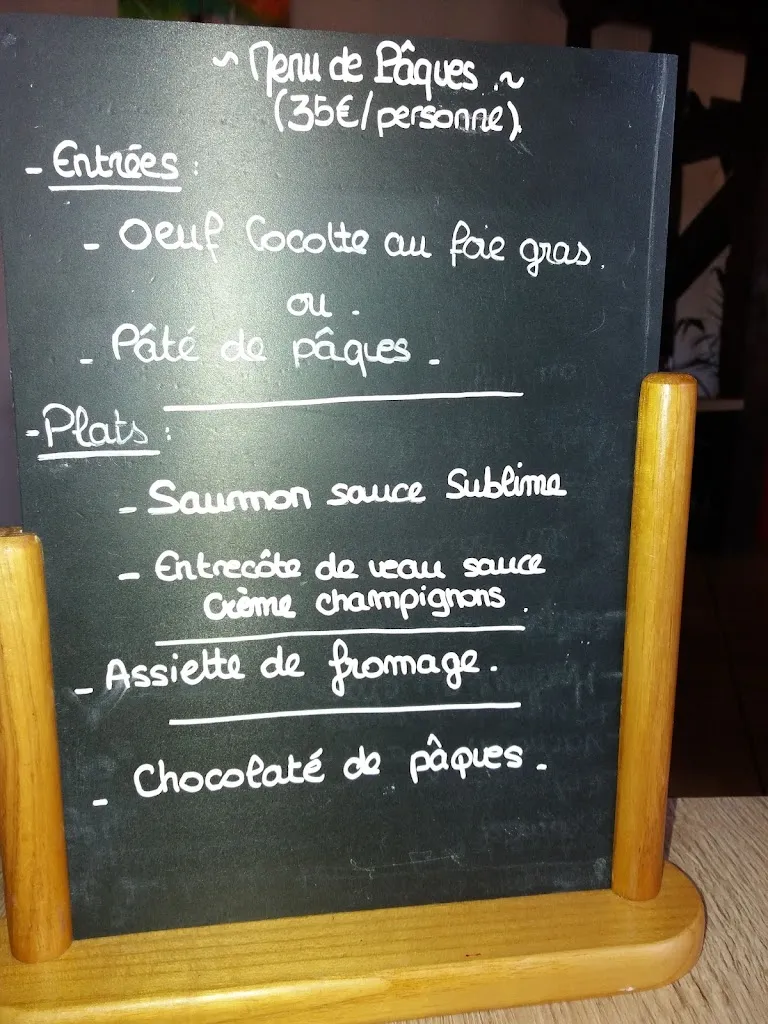 ~ Menu de Pâques ~
(35€/personne)
- Entrées :
- Oeuf Cocotte au foie gras.
ou.
- Pâté de pâques -
- Plats :
- Saumon sauce Sublime
- Entrecôte de veau sauce
Crème champignons.
- Assiette de fromage.
- Chocolaté de pâques -